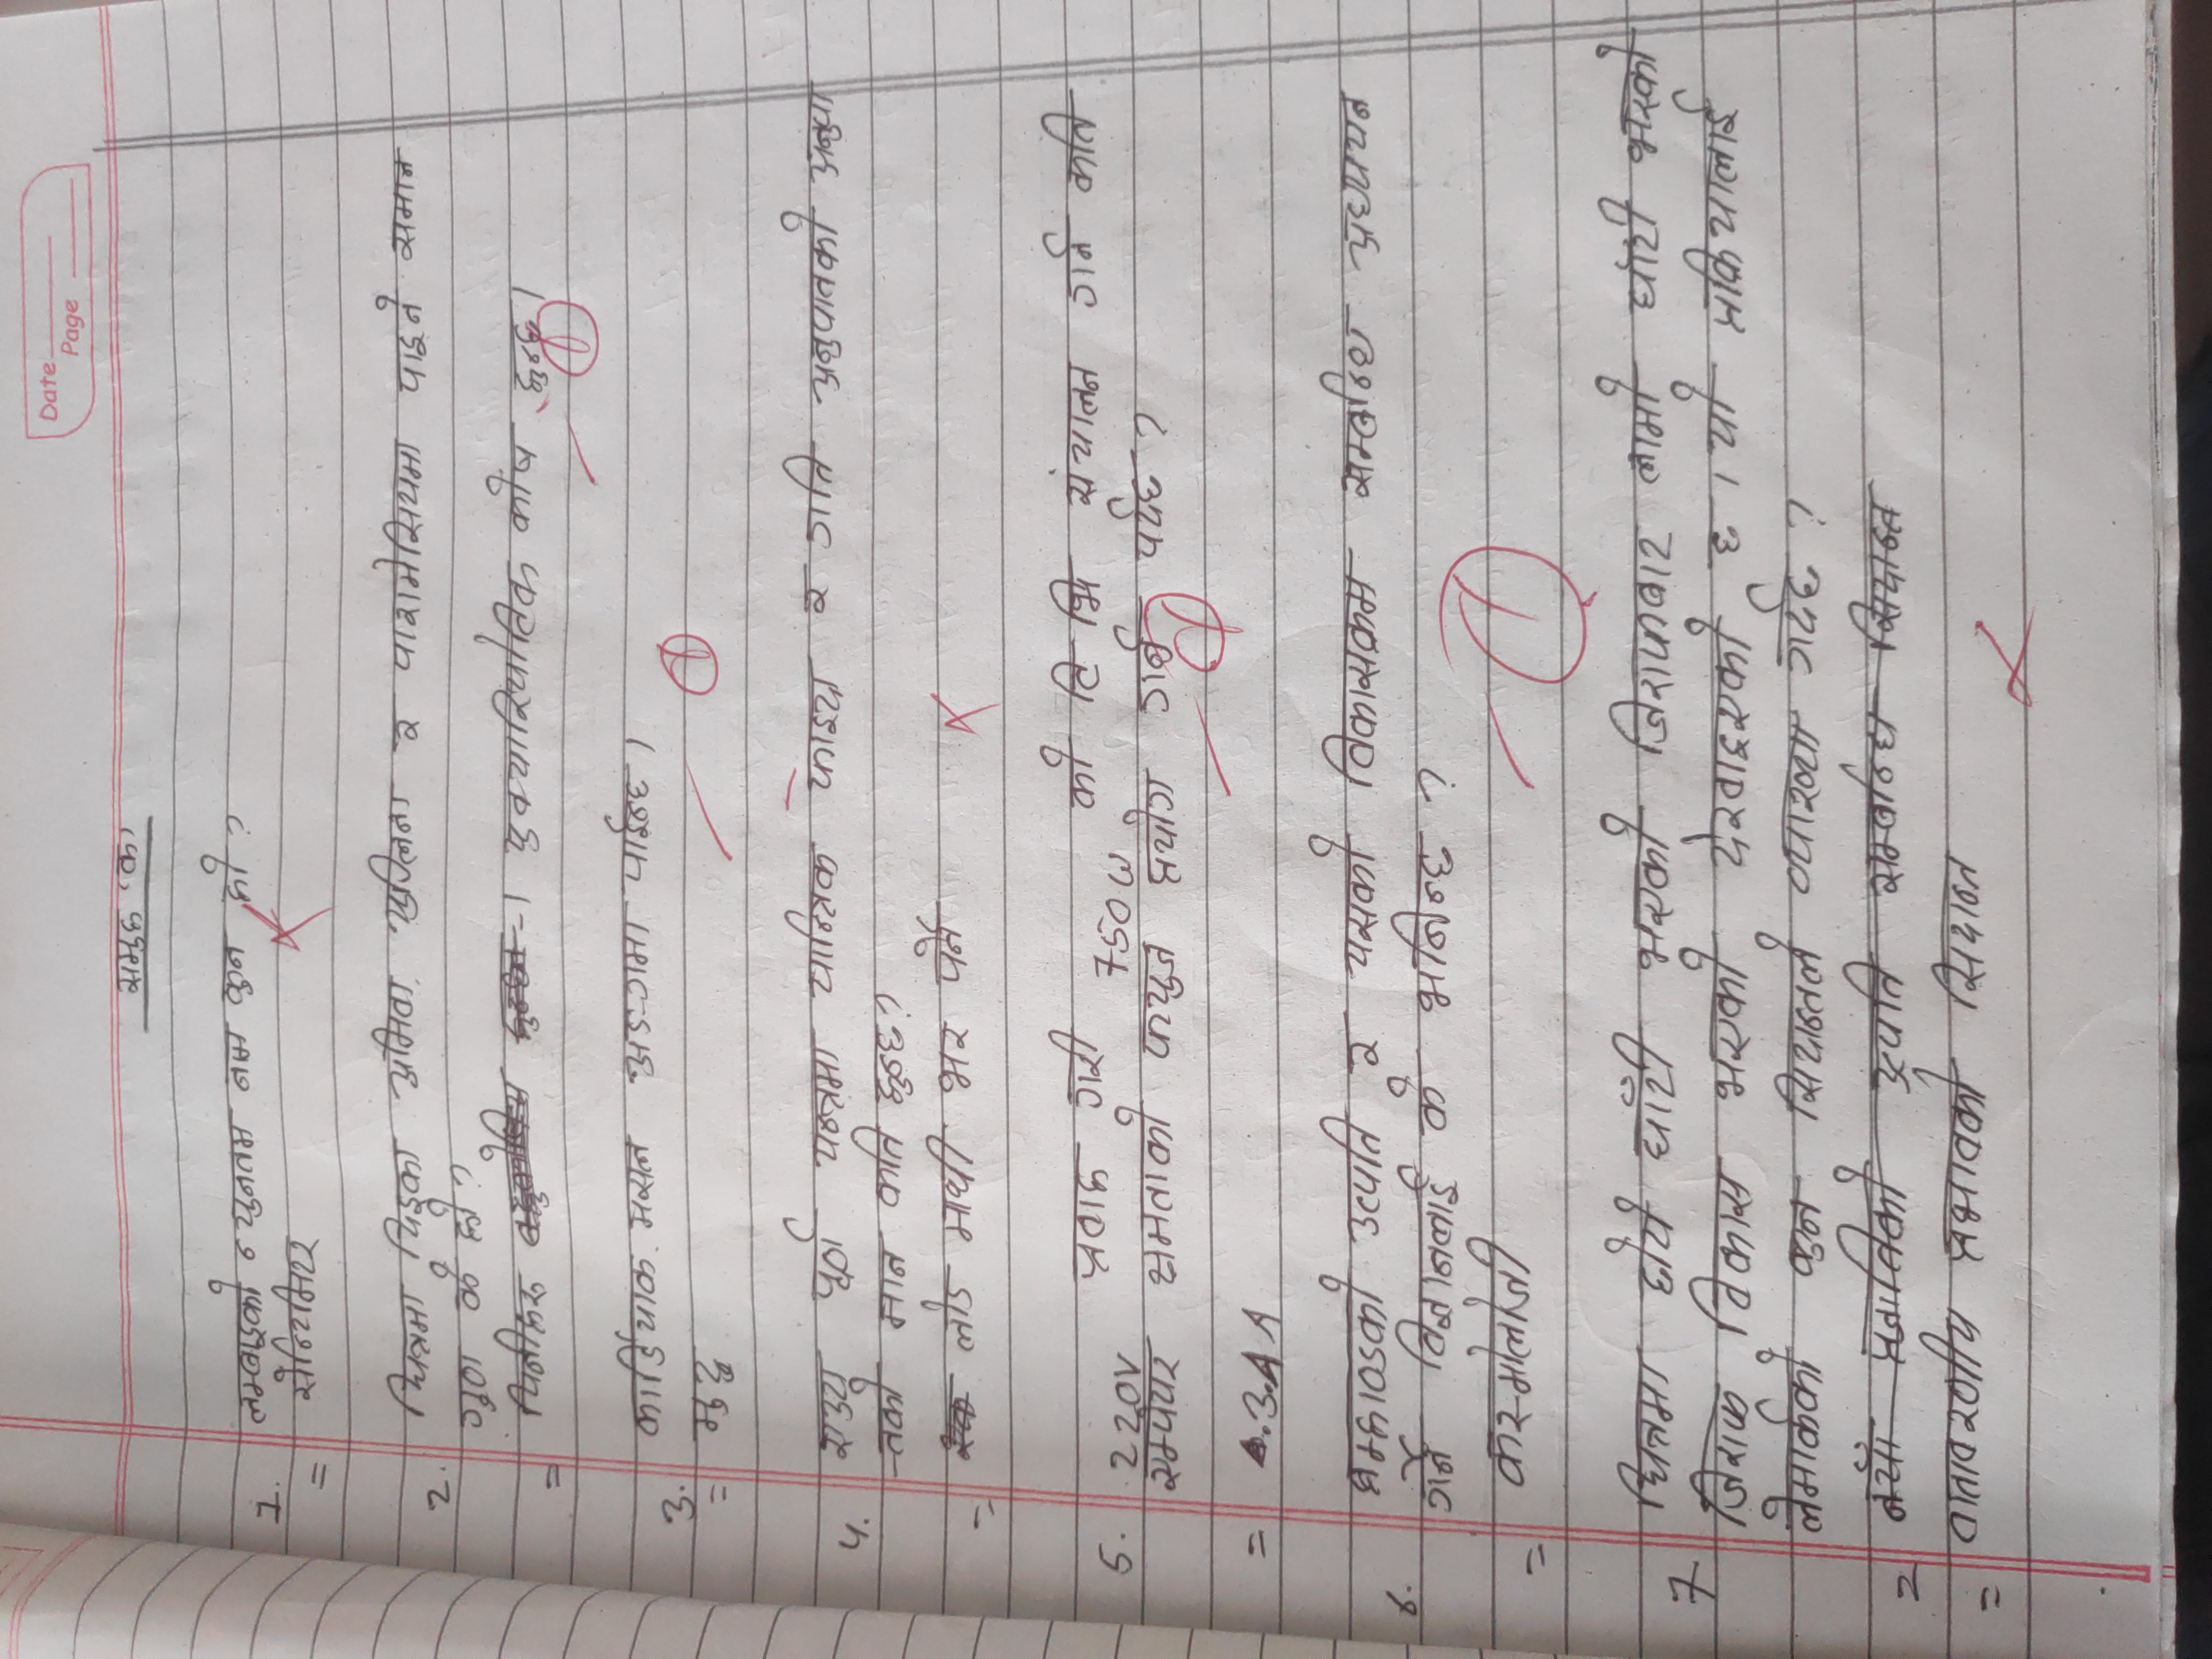 Date
Page
समुह (क)
1. लम्बाइको न्युनतम नाम कुन हो ?
= सेन्टिमिटर
2. चित्रमा दिइका अमिवा, युग्लिना र पारामेसियमा पाइने समान
गुण के हो ?
= यिनीहरु बहुकोषिय हुन्छन । युक्यारियोटिक कोष हुन्छ ।
3. कार्डियाक मसल अङगमा पाईन्छ ।
= मुटु
4. पूर्ण यन्त्रमा यान्त्रिक फाइदा र गति अनुपातको अनुपा
-तको मान कति हुन्छ ?
= लोड माथी भर पर्ने
5. 220V प्रवाह गरी 750W को टि भि संचालन गर्न कति
एम्पियर क्षमताको फ्युज प्रयोग गर्नु पर्दछ ?
= .3.4 A
6. ब्रम्हाण्डको उत्पति र यसको विकासक्रम सम्बन्धि अध्ययन
गर्ने विज्ञानलाई के भनिन्छ ?
= कस्मोलोजी
7 चित्रमा छोटो घाँटी भएको जिराफबाट लामो घाँटी भएको
जिराफ विकास भएको देखाइएको छ । यो प्रक्रियालाई
लेमार्कको कुन सिदान्तले व्याख्या गर्दछ ?
= नयाँ प्रजातिको उत्पति सम्बन्धि सिदान्त
= वातावरणीय प्रभावको सिदान्त